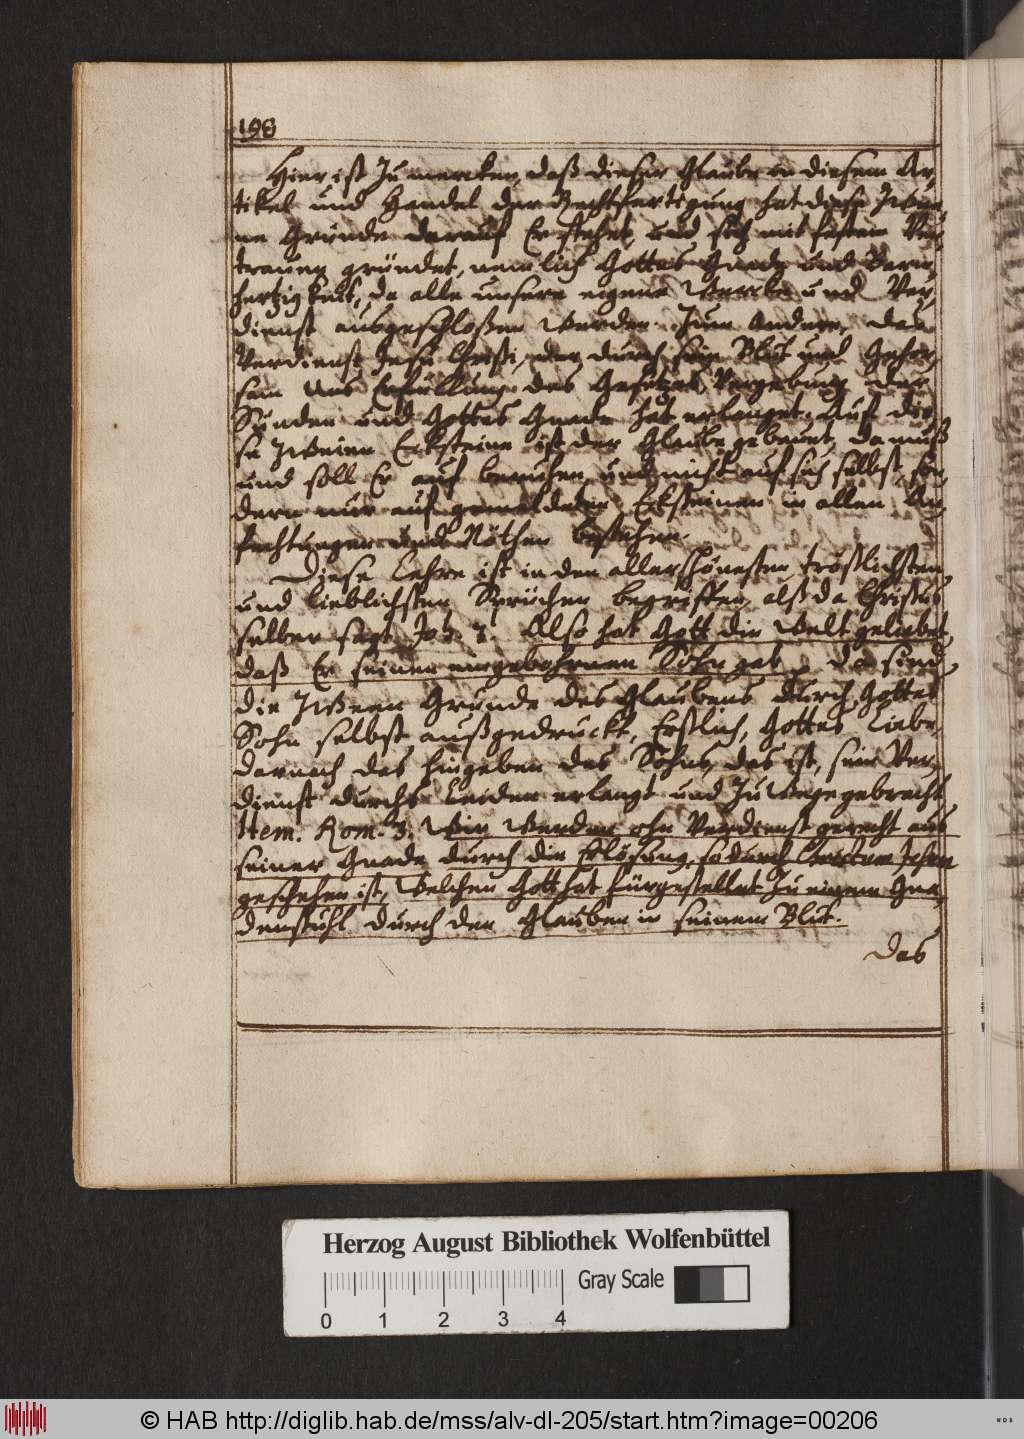 198
Hier ist zu mercken, daß dieser Glaube in diesem Ar,
tikel und Handel der Rechtfertigung hat diese zwee,
ne Gründe darauf Er stehet, und sich mit festem Ver,
trauen gründet, nemlich Gottes Gnade und Barm,
hertzigkeit, da alle unsere eigene Wercke und Ver,
dienst ausgeschloßen werden. Zum Andern, das
Verdienst Jesu Christi, der durch sein Blut und Gehor,
sam uns Erfüllung des Gesetzes, Vergebung der
Sünden und Gottes Gnade hat erlanget. Auf die,
se zweien Ecksteine ist der Glaube gebauet, da muß
und soll Er auf beruhen, und nicht auf sich selbst, son,
dern nur auf gemeldeten Ecksteinen in allen An,
fechtungen und Nöthen bestehen.
Diese Lehre ist in den allerschönesten, tröstlichsten
und lieblichsten Sprüchen begriffen, alß da Christus
selber sagt Joh. 3. Also hat Gott die Welt geliebet,
daß Er seinen eingebohrnen Sohn gab, da sind
die zween Gründe des Glaubens durch Gottes
Sohn selbst außgedruckt, Erstlich, Gottes Liebe,
darnach das hingeben des Sohns, das ist, sein Ver,
dienst durchs Leiden erlangt und zu wege gebracht
Item. Rom. 3. Wir werden ohn Verdienst gerecht aus
seiner Gnade durch die Erlösung, so durch Christum Jesum
geschehen ist, welchen Gott hat fürgestellet zu einem Gna,
denstuhl durch den Glauben in seinem Blut.
Das
Herzog August Bibliothek Wolfenbüttel
Gray Scale
0 1 2 3 4
© HAB http://diglib.hab.de/mss/alv-dl-205/start.htm?image=00206